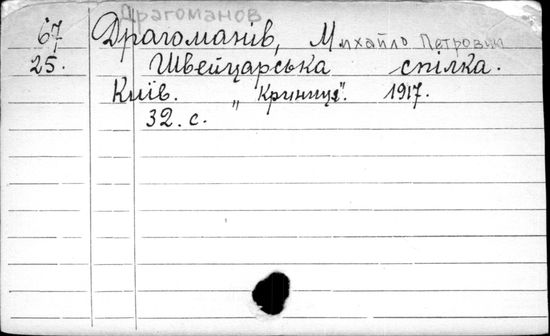 Драгоманов
67 Драгоманів, Михайло Петрович
25. Швейцарська спілка.
Київ. „Криниця". 1917.
32. с.